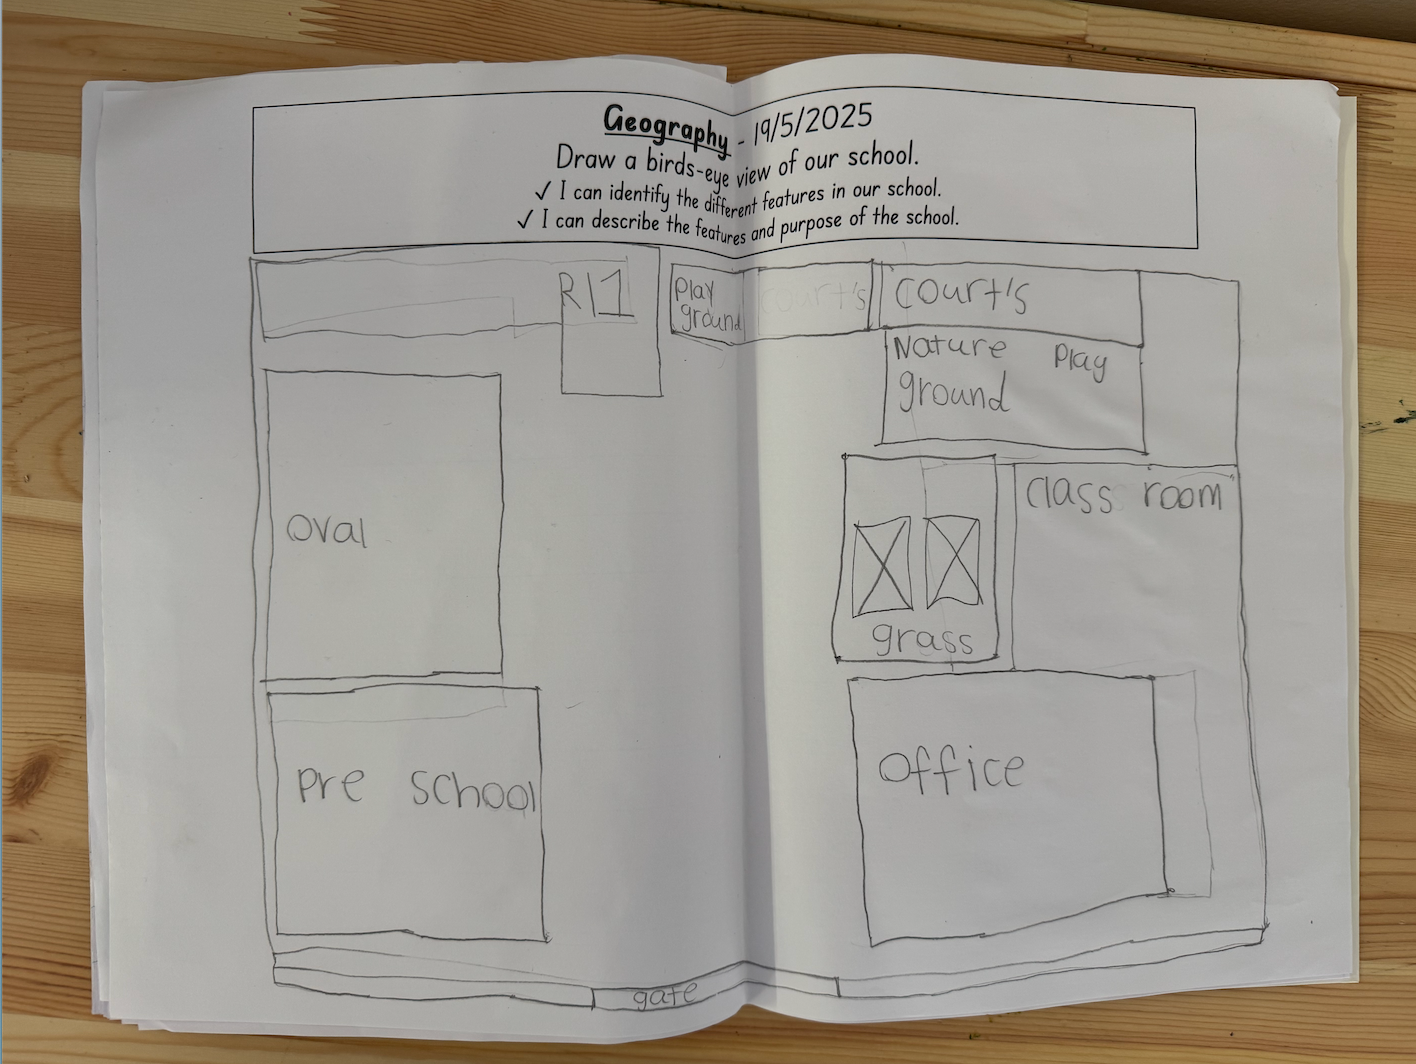 Geography - 19/5/2025
Draw a birds-eye view of our school.
✓ I can identify the different features in our school.
✓ I can describe the features and purpose of the school.
R11
Play
ground
court's
court's
Nature Play
ground
class room
oval
grass
pre school
office
gate